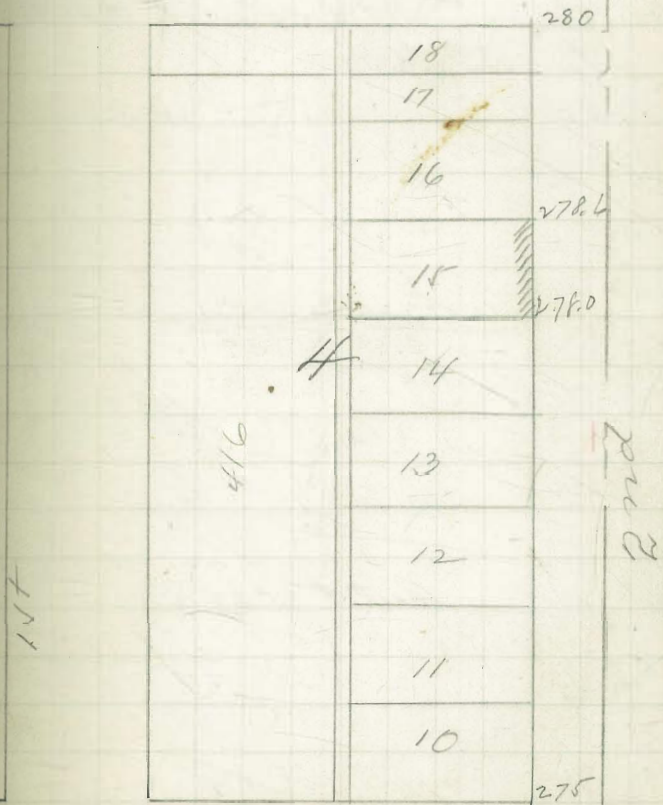 280
18
17
16
278.6
15
278.0
4
14
416
13
2nd
12
1st
11
10
275